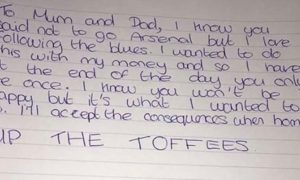 To Mum and Dad, I know you
said not to go Arsenal but I love
following the blues. I wanted to do
this with my money and so I have
at the end of the day you only
once. I know you won't be
happy but it's what I wanted to
I'll accept the consequences when home
UP THE TOFFEES